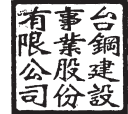 台鋼建設
事業股份
有限公司